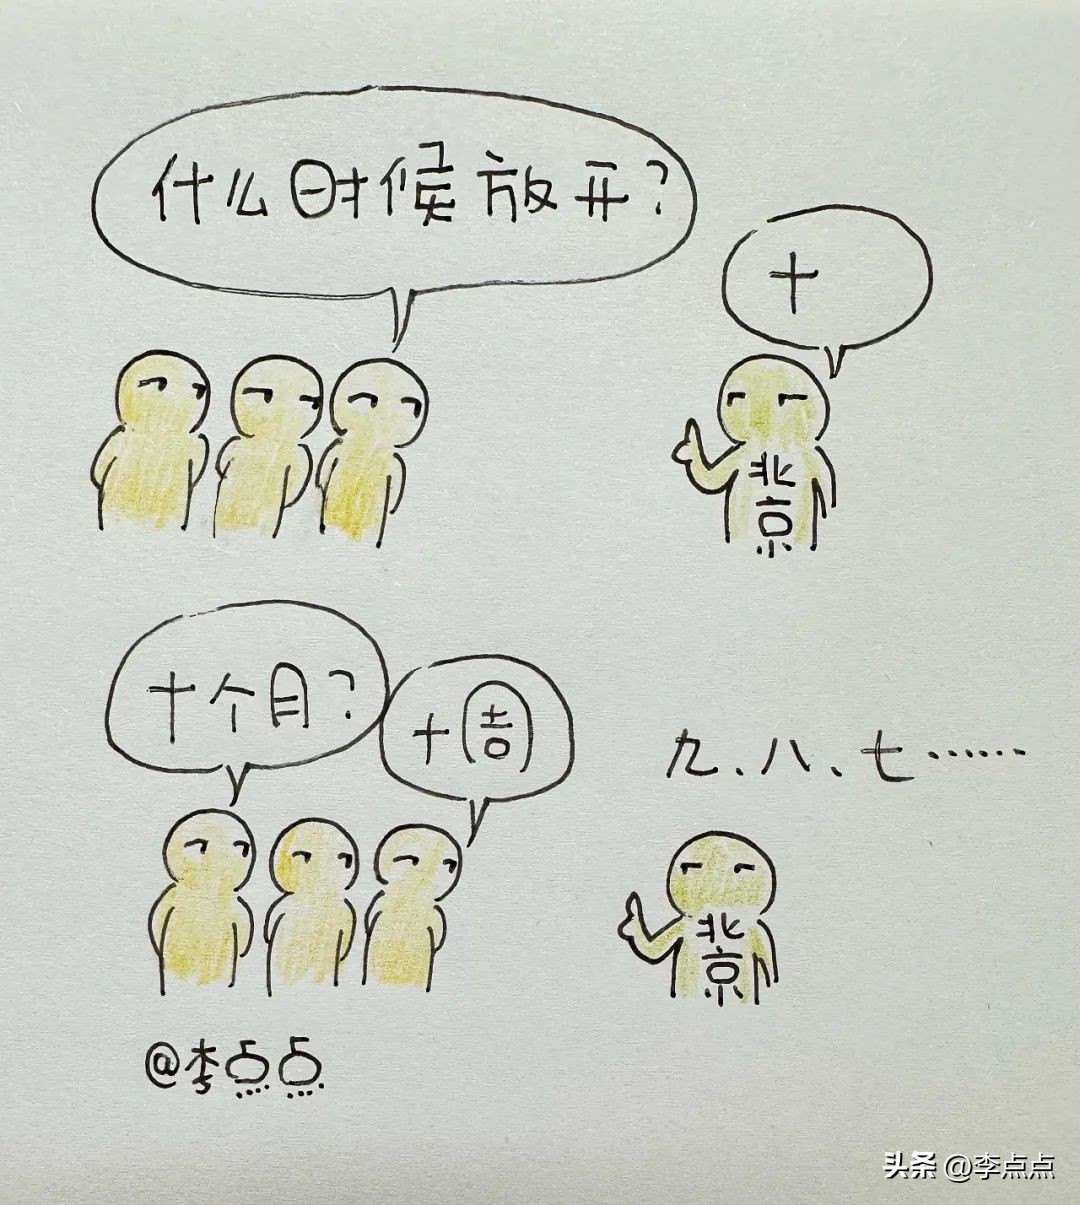 什么时候放开?
十
北京
十个月?
十周
九、八、七……
北京
@李点点
头条 @李点点